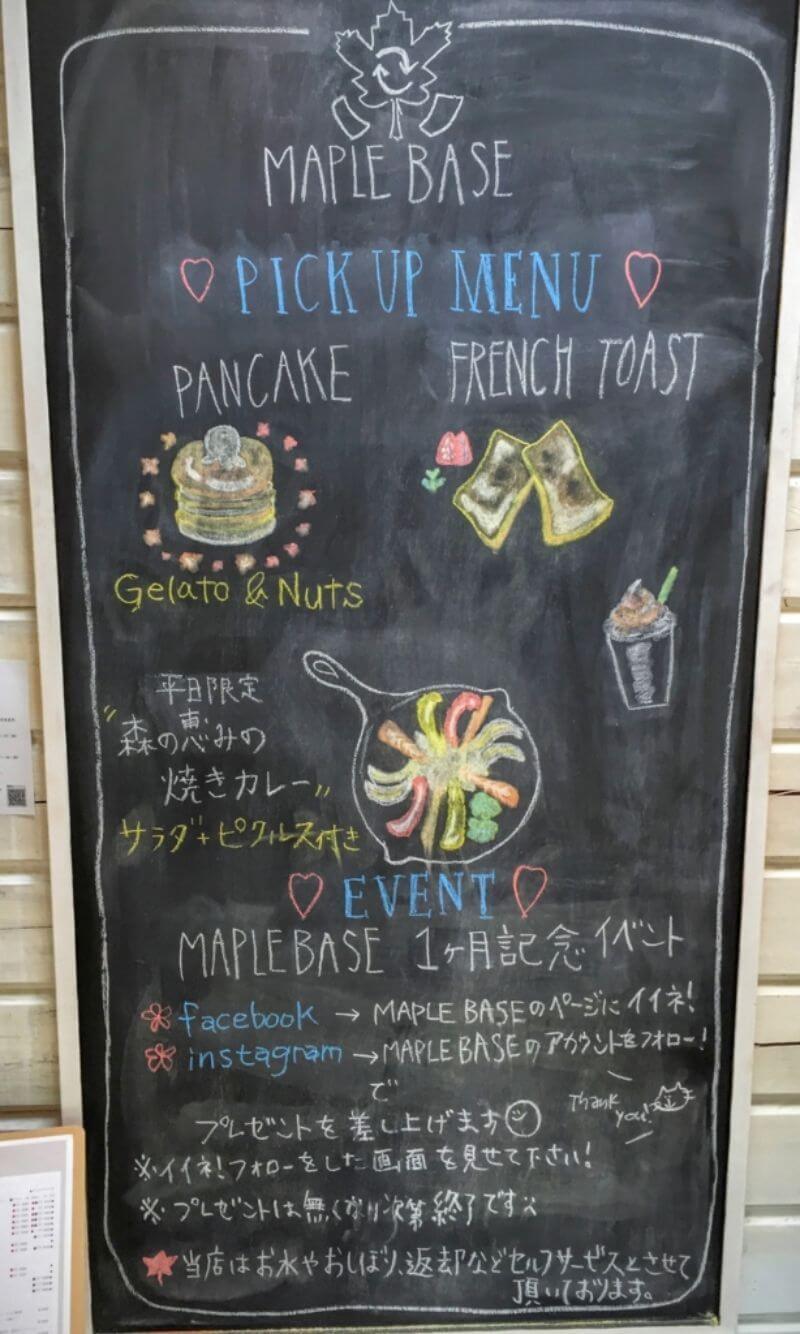 MAPLE BASE
PICK UP MENU
PANCAKE
FRENCH TOAST
Gelato & Nuts
平日限定
"森の恵みの
焼きカレー"
サラダ+ピクルス付き
EVENT
MAPLE BASE 1ヶ月記念イベント
facebook → MAPLE BASEのページにイイネ!
instagram → MAPLE BASEのアカウントをフォロー!
で
プレゼントを差し上げます
Thank
you!
※イイネ!フォローをした画面を見せて下さい!
※プレゼントは無くなり次第終了です
当店はお水やおしぼり、返却などセルフサービスとさせて
頂いております。